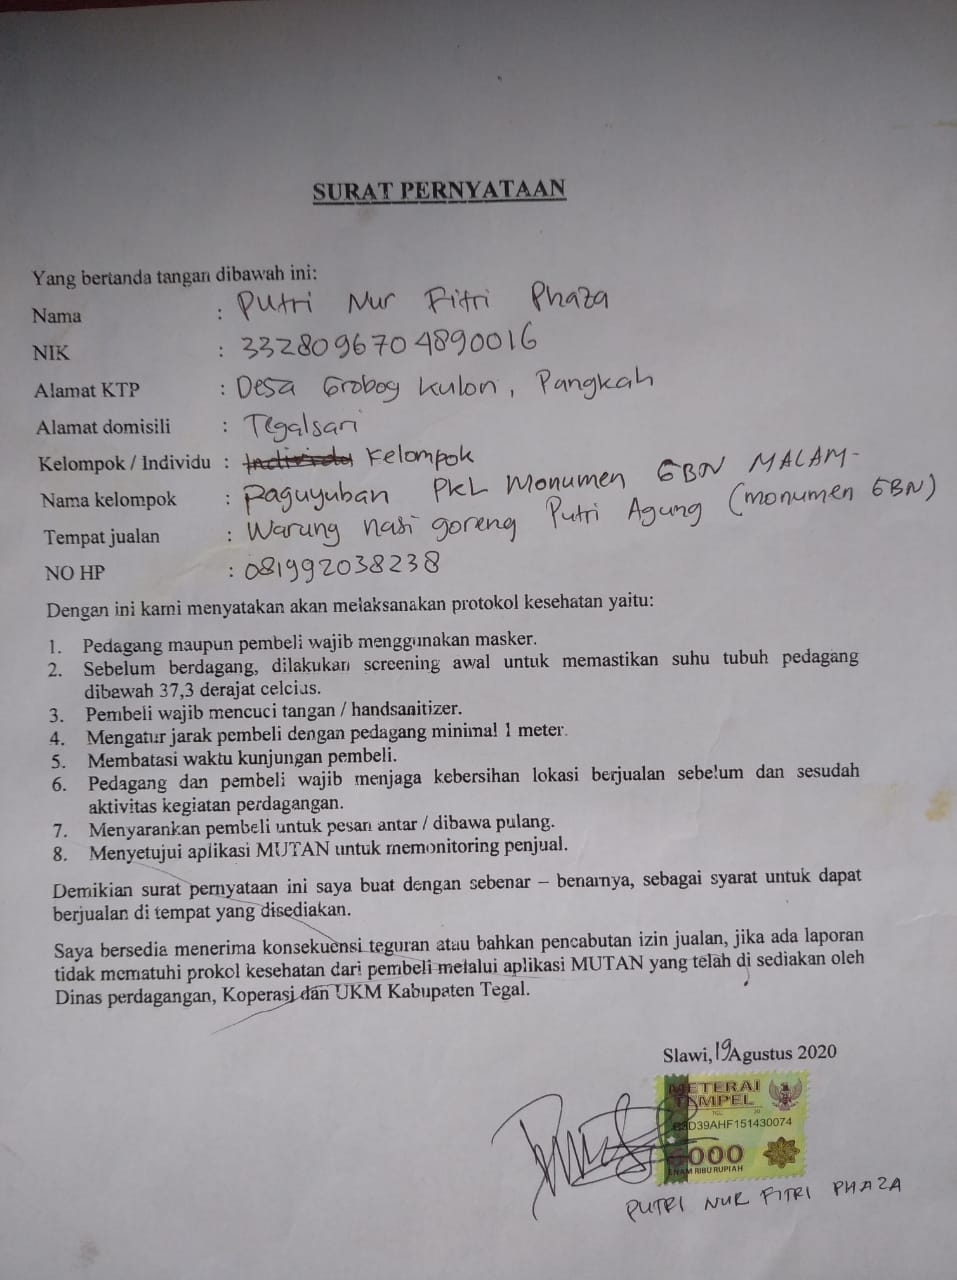 SURAT PERNYATAAN
Yang bertanda tangan dibawah ini:
Nama : Putri Nur Fitri Phaza
NIK : 3328096704890016
Alamat KTP : Desa Grobog Kulon, Pangkah
Alamat domisili : Tegalsari
Kelompok / Individu : Individu Kelompok
Nama kelompok : Paguyuban PKL Monumen GBN MALAM-
Tempat jualan : Warung nasi goreng Putri Agung (monumen GBN)
NO HP : 081992038238
Dengan ini kami menyatakan akan melaksanakan protokol kesehatan yaitu:
1. Pedagang maupun pembeli wajib menggunakan masker.
2. Sebelum berdagang, dilakukan screening awal untuk memastikan suhu tubuh pedagang
dibawah 37,3 derajat celcius.
3. Pembeli wajib mencuci tangan / handsanitizer.
4. Mengatur jarak pembeli dengan pedagang minimal 1 meter.
5. Membatasi waktu kunjungan pembeli.
6. Pedagang dan pembeli wajib menjaga kebersihan lokasi berjualan sebelum dan sesudah
aktivitas kegiatan perdagangan.
7. Menyarankan pembeli untuk pesan antar / dibawa pulang.
8. Menyetujui aplikasi MUTAN untuk memonitoring penjual.
Demikian surat pernyataan ini saya buat dengan sebenar – benarnya, sebagai syarat untuk dapat
berjualan di tempat yang disediakan.
Saya bersedia menerima konsekuensi teguran atau bahkan pencabutan izin jualan, jika ada laporan
tidak mematuhi prokol kesehatan dari pembeli melalui aplikasi MUTAN yang telah di sediakan oleh
Dinas perdagangan, Koperasi dan UKM Kabupaten Tegal.
Slawi, 19 Agustus 2020
METERAI
TEMPEL
TGL. 20
D39AHF151430074
6000
ENAM RIBU RUPIAH
PUTRI NUR FITRI PHAZA